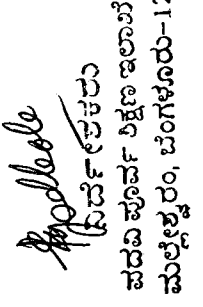 ನಿರ್ದೇಶಕರು
ಪದವಿ ಪೂರ್ವ ಶಿಕ್ಷಣ ಇಲಾಖೆ
ಮಲ್ಲೇಶ್ವರಂ, ಬೆಂಗಳೂರು-12